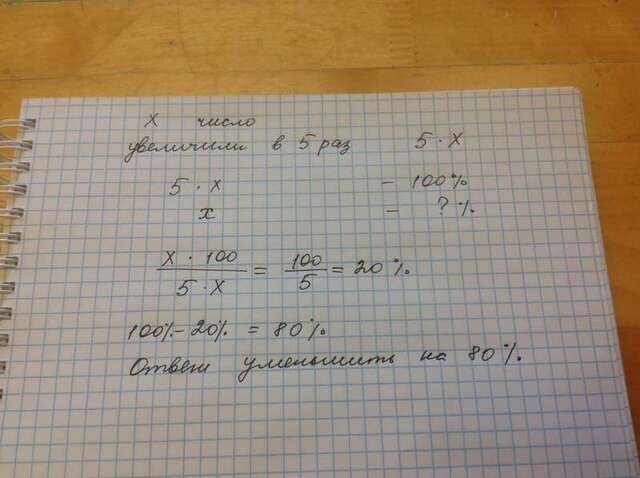 x число
увеличили в 5 раз 5 · x
5 · x – 100%
x – ? %
x · 100 / 5 · x = 100 / 5 = 20%
100% – 20% = 80%
Ответ уменьшить на 80%